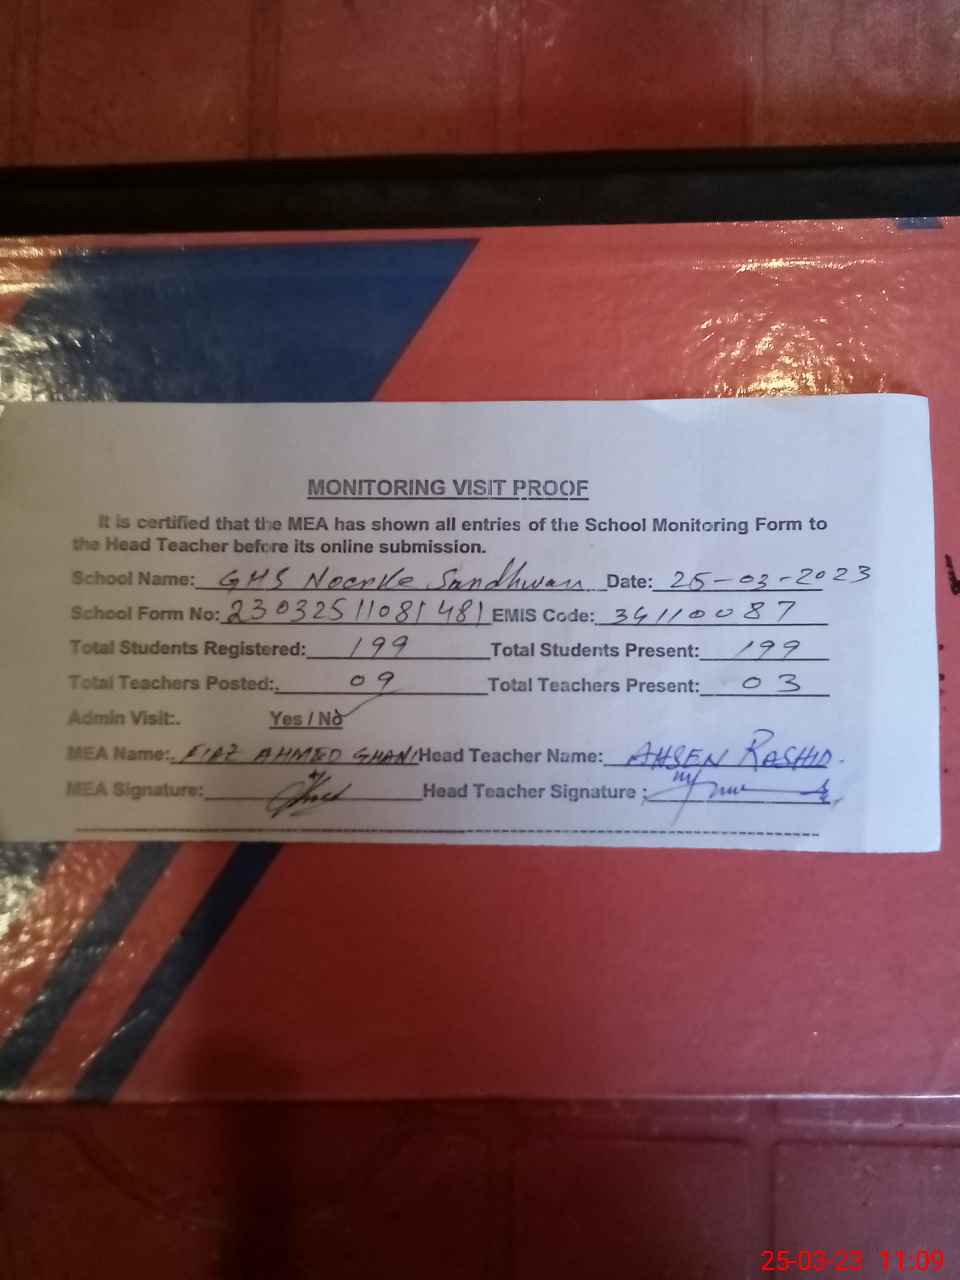 MONITORING VISIT PROOF
It is certified that the MEA has shown all entries of the School Monitoring Form to
the Head Teacher before its online submission.
School Name: GHS Noorke Sandhwan Date: 25-03-2023
School Form No: 23032511081481 EMIS Code: 34110087
Total Students Registered: 199 Total Students Present: 199
Total Teachers Posted:. 09 Total Teachers Present: 03
Admin Visit:. Yes / No
MEA Name:. FIAZ AHMED GHANI Head Teacher Name: AHSEN RASHID.
MEA Signature: Head Teacher Signature :
25-03-23 11:09